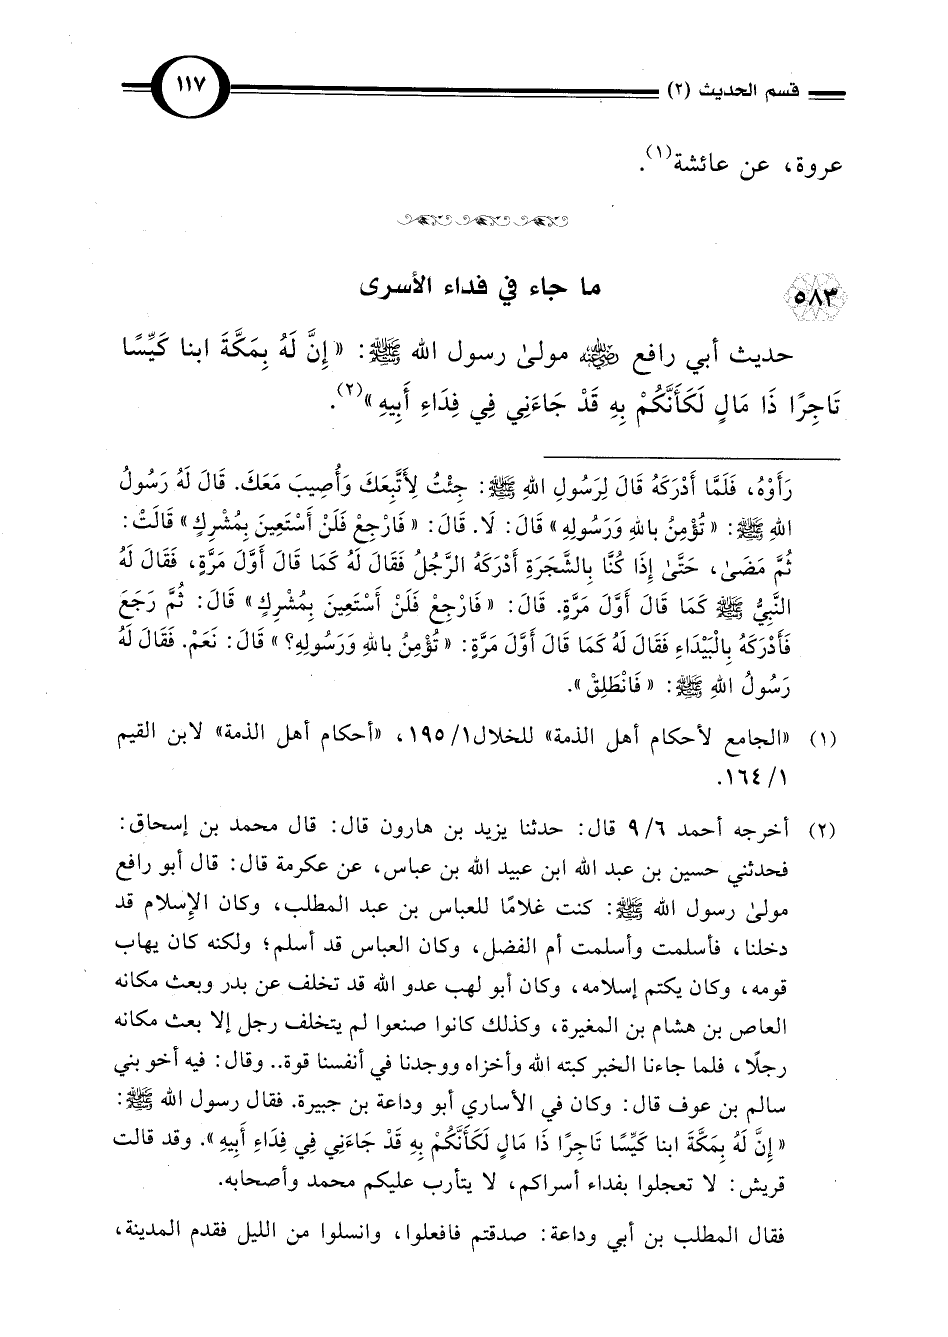 قسم الحديث (٢)
١١٧
عروة، عن عائشة(١).
٥٨٣
ما جاء في فداء الأسرى
حديث أبي رافع رضي الله عنه مولىٰ رسول الله ﷺ: «إِنَّ لَهُ بِمَكَّةَ ابنا كَيِّسًا
تَاجِرًا ذَا مَالٍ لَكَأَنَّكُمْ بِهِ قَدْ جَاءَنِي فِي فِدَاءِ أَبِيهِ»(٢).
رَأَوْهُ، فَلَمَّا أَدْرَكَهُ قَالَ لِرَسُولِ اللهِ ﷺ: جِئْتُ لِأَتَّبِعَكَ وَأُصِيبَ مَعَكَ. قَالَ لَهُ رَسُولُ
اللهِ ﷺ: «تُؤْمِنُ بِاللهِ وَرَسُولِهِ» قَالَ: لَا. قَالَ: «فَارْجِعْ فَلَنْ أَسْتَعِينَ بِمُشْرِكٍ» قَالَتْ:
ثُمَّ مَضَىٰ، حَتَّىٰ إِذَا كُنَّا بِالشَّجَرَةِ أَدْرَكَهُ الرَّجُلُ فَقَالَ لَهُ كَمَا قَالَ أَوَّلَ مَرَّةٍ، فَقَالَ لَهُ
النَّبِيُّ ﷺ كَمَا قَالَ أَوَّلَ مَرَّةٍ. قَالَ: «فَارْجِعْ فَلَنْ أَسْتَعِينَ بِمُشْرِكٍ» قَالَ: ثُمَّ رَجَعَ
فَأَدْرَكَهُ بِالْبَيْدَاءِ فَقَالَ لَهُ كَمَا قَالَ أَوَّلَ مَرَّةٍ: «تُؤْمِنُ بِاللهِ وَرَسُولِهِ؟» قَالَ: نَعَمْ. فَقَالَ لَهُ
رَسُولُ اللهِ ﷺ: «فَانْطَلِقْ».
(١) «الجامع لأحكام أهل الذمة» للخلال١/ ١٩٥، «أحكام أهل الذمة» لابن القيم
١/ ١٦٤.
(٢) أخرجه أحمد ٦/ ٩ قال: حدثنا يزيد بن هارون قال: قال محمد بن إسحاق:
فحدثني حسين بن عبد الله ابن عبيد الله بن عباس، عن عكرمة قال: قال أبو رافع
مولىٰ رسول الله ﷺ: كنت غلامًا للعباس بن عبد المطلب، وكان الإسلام قد
دخلنا، فأسلمت وأسلمت أم الفضل، وكان العباس قد أسلم؛ ولكنه كان يهاب
قومه، وكان يكتم إسلامه، وكان أبو لهب عدو الله قد تخلف عن بدر وبعث مكانه
العاص بن هشام بن المغيرة، وكذلك كانوا صنعوا لم يتخلف رجل إلا بعث مكانه
رجلًا، فلما جاءنا الخبر كبته الله وأخزاه ووجدنا في أنفسنا قوة.. وقال: فيه أخو بني
سالم بن عوف قال: وكان في الأساري أبو وداعة بن جبيرة. فقال رسول الله ﷺ:
«إِنَّ لَهُ بِمَكَّةَ ابنا كَيِّسًا تَاجِرًا ذَا مَالٍ لَكَأَنَّكُمْ بِهِ قَدْ جَاءَنِي فِي فِدَاءِ أَبِيهِ». وقد قالت
قريش: لا تعجلوا بفداء أسراكم، لا يتأرب عليكم محمد وأصحابه.
فقال المطلب بن أبي وداعة: صدقتم فافعلوا، وانسلوا من الليل فقدم المدينة،